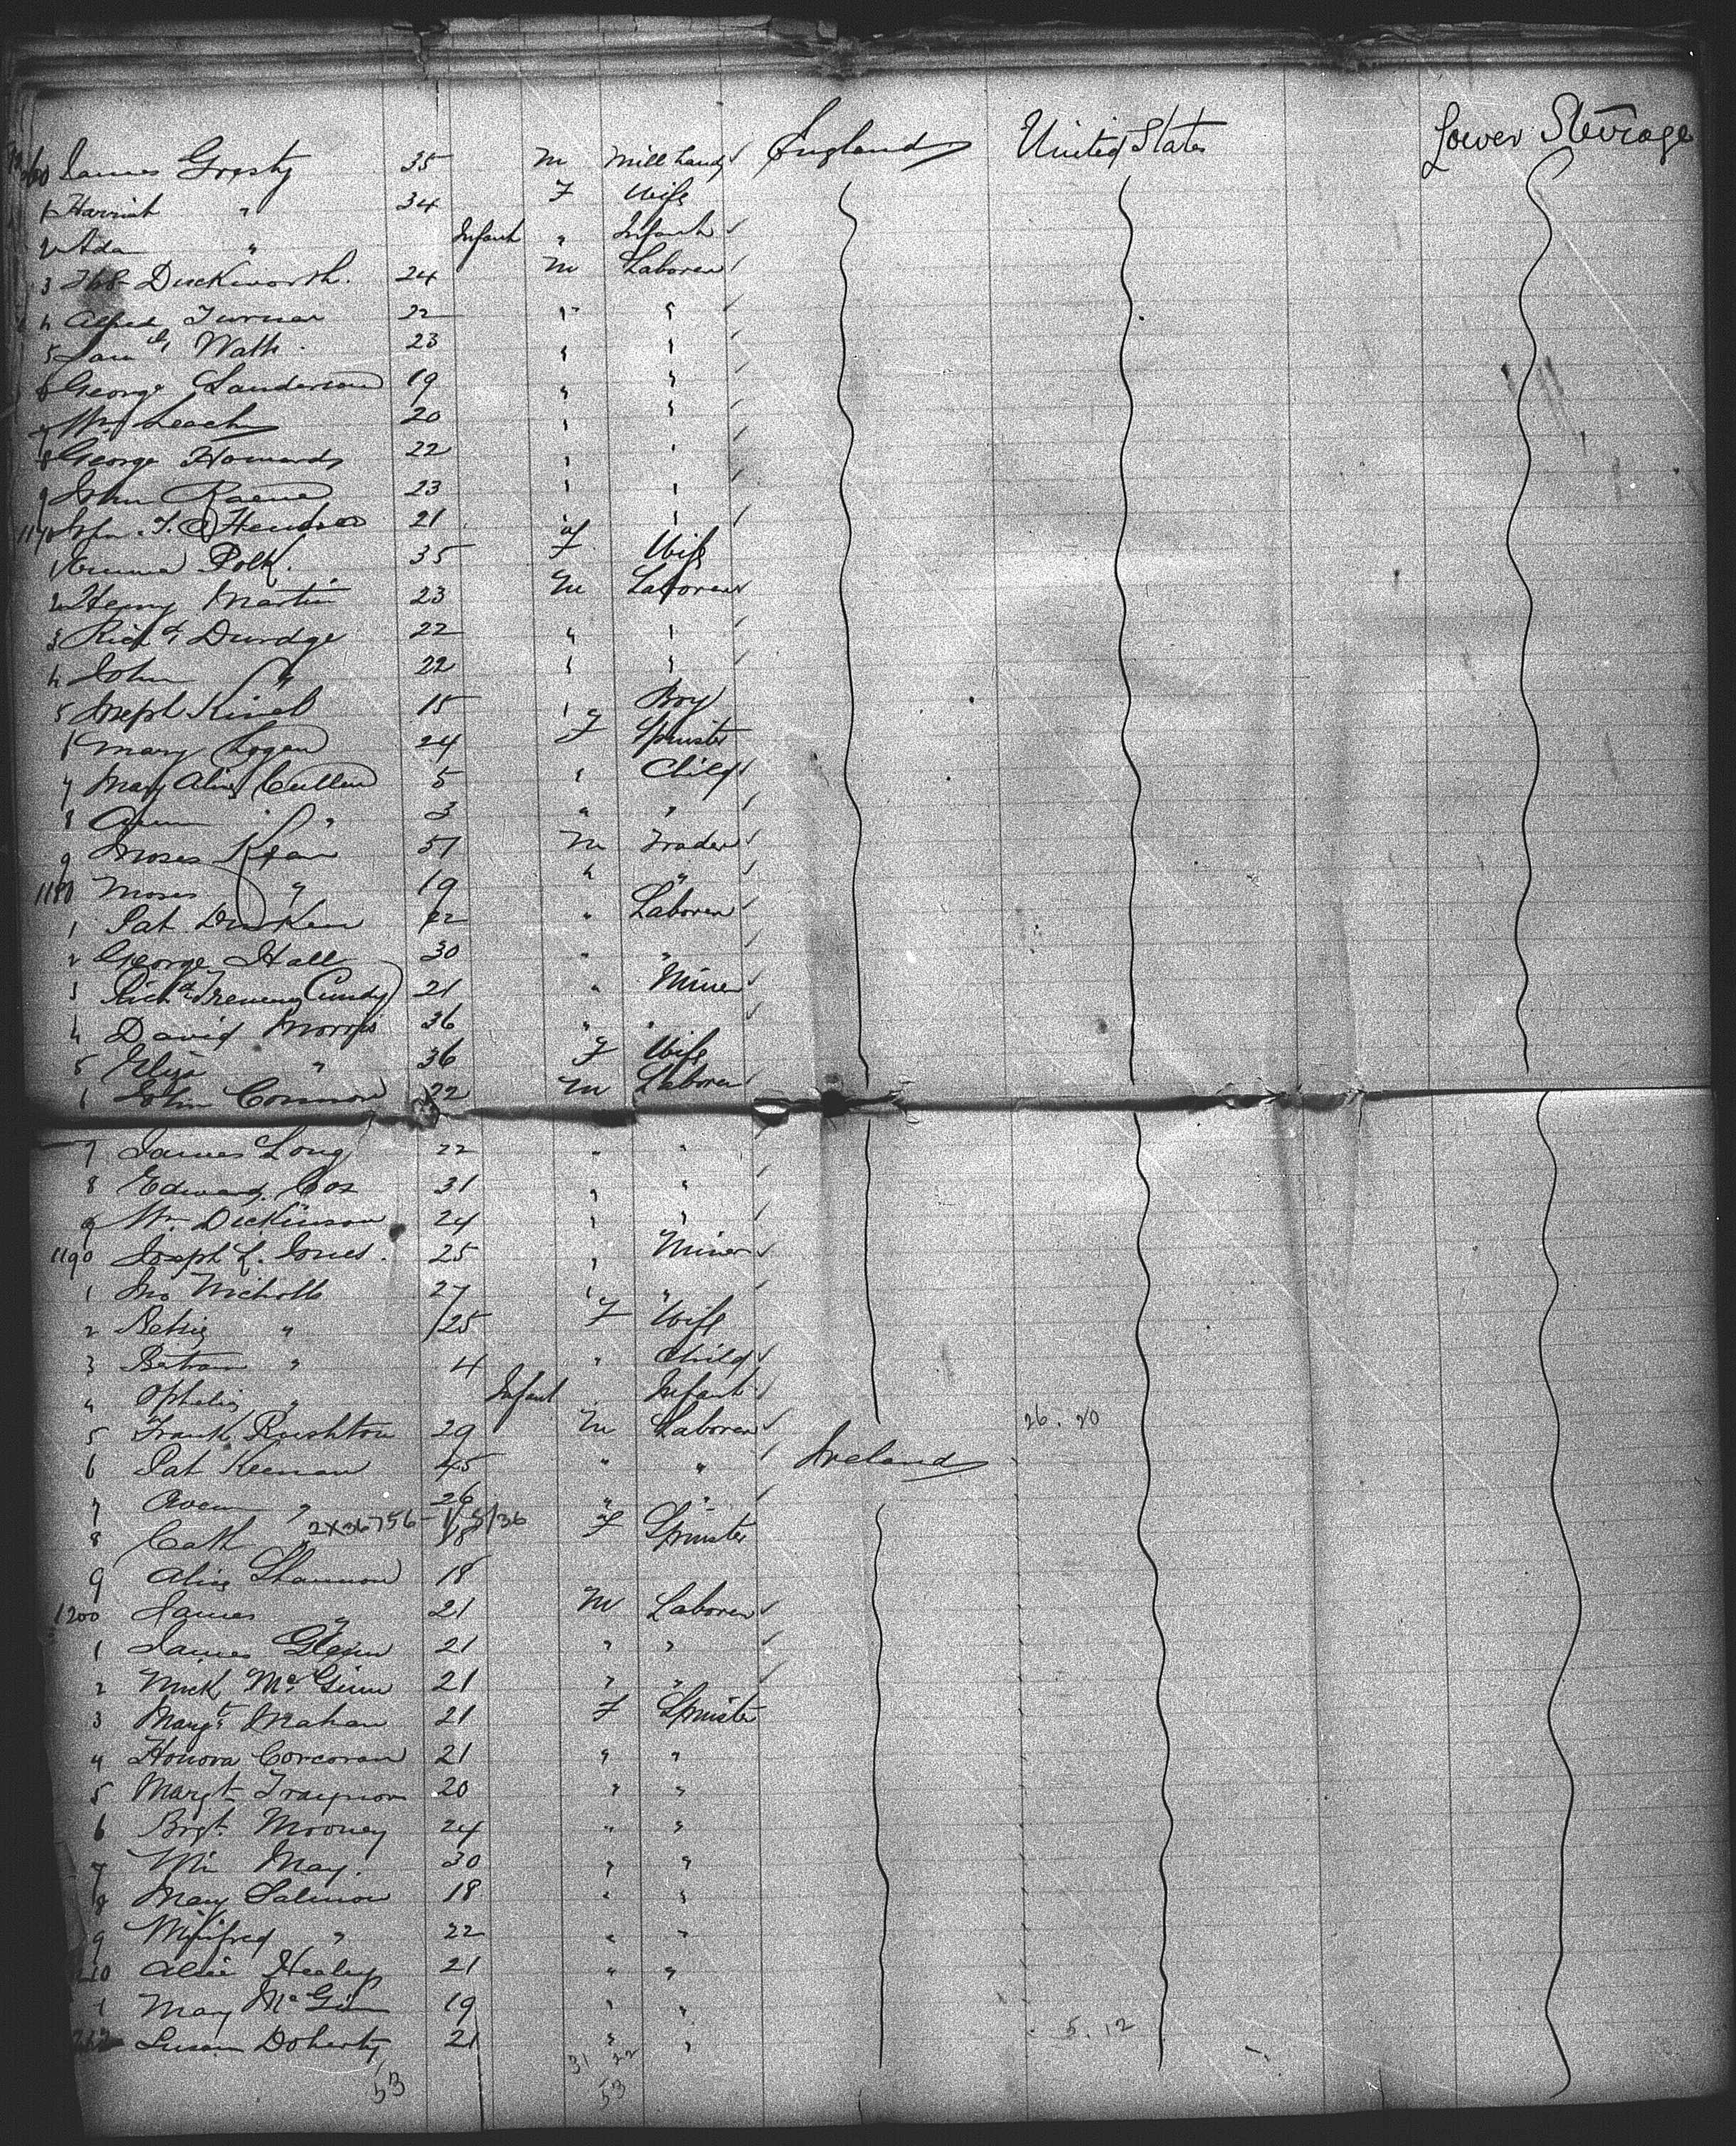 1160 James Grosty 35 M Mill hand England United States Lower Steerage
1 Harriet " 34 F Wife
2 Ada " Infant " Infant
3 Duckworth. 24 M Laborer
4 Alfred Turner 22 " "
5 Saml Watts 23 " "
6 George Sanderson 19 " "
7 Wm Leach 20 " "
8 George Howards 22 " "
9 John 23 " "
1170 21 " "
1 Emma Polk. 35 F Wife
2 Henry Martin 23 M Laborer
3 Richd Durdge 22 " "
4 John " 22 " "
5 Joseph 15 " Boy
6 Mary Logan 24 F Spinster
7 Mary Alice Cullen 5 " Child
8 " 3 " "
9 Moses Kean 51 M Trader
1180 Moses " 19 " "
1 Pat Durken 22 " Laborer
2 George Hall 30 " "
3 Richd Cundy 21 " Miner
4 David Morris 36 " "
5 Eliza " 36 F Wife
6 John Connor 22 M Laborer
7 James Long 22 " "
8 Edward Cox 31 " "
9 Wm Dickinson 24 " "
1190 Joseph L. Jones. 25 " Miner
1 Jno Nicholls 27 " "
2 Betsie " 25 F Wife
3 Betram " 4 " Child
4 Ophelia " Infant Infant
5 Frank Rushton 29 M Laborer 26. 20
6 Pat Keenan 45 " " Ireland
7 Owen " 26 " "
8 Cath " 2X36756- 18 F Spinster
9 Alice Shannon 18
1200 James " 21 M Laborer
1 James Glenn 21 " "
2 Mick McGinn 21 " "
3 Margt Mahan 21 F Spinster
4 Honora Corcoran 21 " "
5 Margt Traynor 20 " "
6 Brgt. Mooney 24 " "
7 May. 30 " "
8 Mary Salmon 18 " "
9 Winifred " 22 " "
1210 Alice Healy 21 " "
1 Mary McGinn 19 " "
1212 Susan Doherty 21 " " 5. 12
31 22
53 53